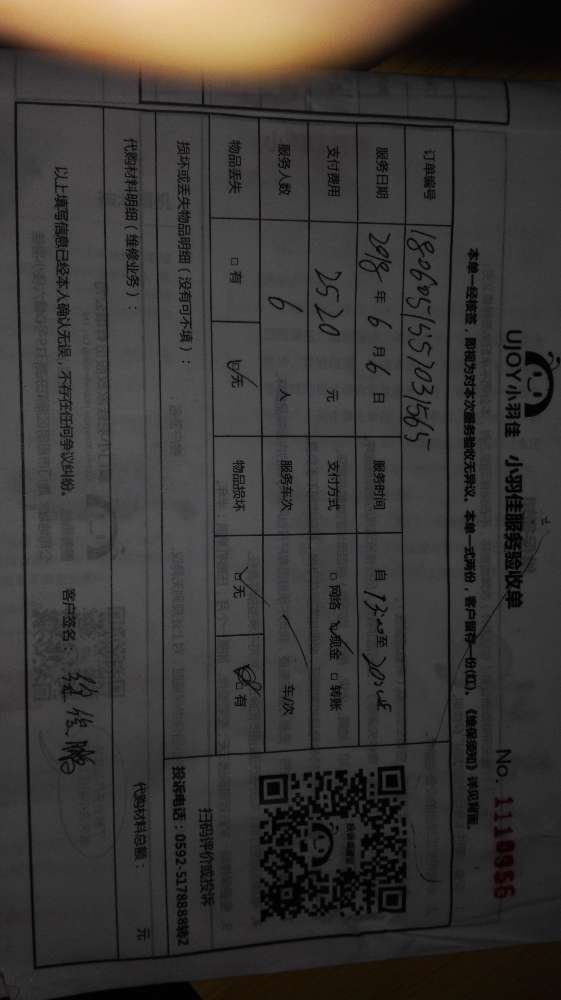 UJOY小羽佳 小羽佳服务验收单
No. 1110956
本单一经核签，即视为对本次服务验收无异议。本单一式两份，客户留存一份(红)。《维保须知》详见背面。
订单编号 1806051557031565
服务日期 2018 年 6 月 6 日 服务时间 自 13:00 至
支付费用 2520 元 支付方式 □网络 ☑现金 □转账
服务人数 6 人 服务车次 / 车/次
物品丢失 □有 ☑无 物品损坏 ☑无 □有
扫码评价或投诉
投诉电话：0592-5178888转2
损坏或丢失物品明细（没有可不填）：
代购材料明细（维修业务）：
代购材料总额： 元
以上填写信息已经本人确认无误，不存在任何争议纠纷。 客户签名：